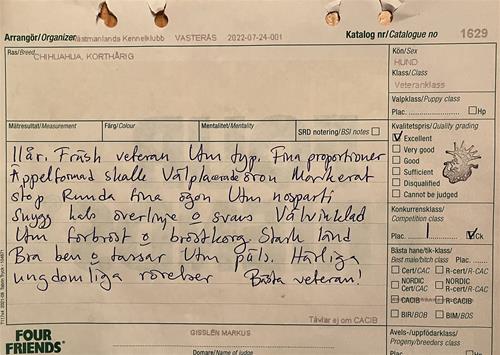 Arrangör/Organizer Västmanlands Kennelklubb VÄSTERÅS 2022-07-24-001
Katalog nr/Catalogue no 1629
Ras/Breed CHIHUAHUA, KORTHÅRIG
Kön/Sex
HUND
Klass/Class
Veteranklass
Valpklass/Puppy class
Plac. Hp
Mätresultat/Measurement Färg/Colour Mentalitet/Mentality SRD notering/BSI notes
Kvalitetspris/Quality grading
Excellent
Very good
Good
Sufficient
Disqualified
Cannot be judged
11 år. Fräsh veteran Utm typ. Fina proportioner
Äppelformad skalle Välplacerade öron Markerat
stop Runda fina ögon Utm nosparti
Snygg hals överlinje o svans Välvinklad
Utm förbröst o bröstkorg Stark länd
Bra ben o tassar Utm päls. Härliga
ungdomliga rörelser Bästa veteran!
Konkurrensklass/
Competition class
Plac. 1 Ck
Bästa hane/tik-klass/
Best male/bitch class Plac.
Cert/CAC R-cert/R-CAC
NORDIC Cert/CAC NORDIC R-cert/R-CAC
CACIB R-CACIB
BIR/BOB BIM/BOS
Tävlar ej om CACIB
Avels-/uppfödarklass/
Progeny/breeders class
FOUR
FRIENDS
GISSLÉN MARKUS
Domare/Name of judge